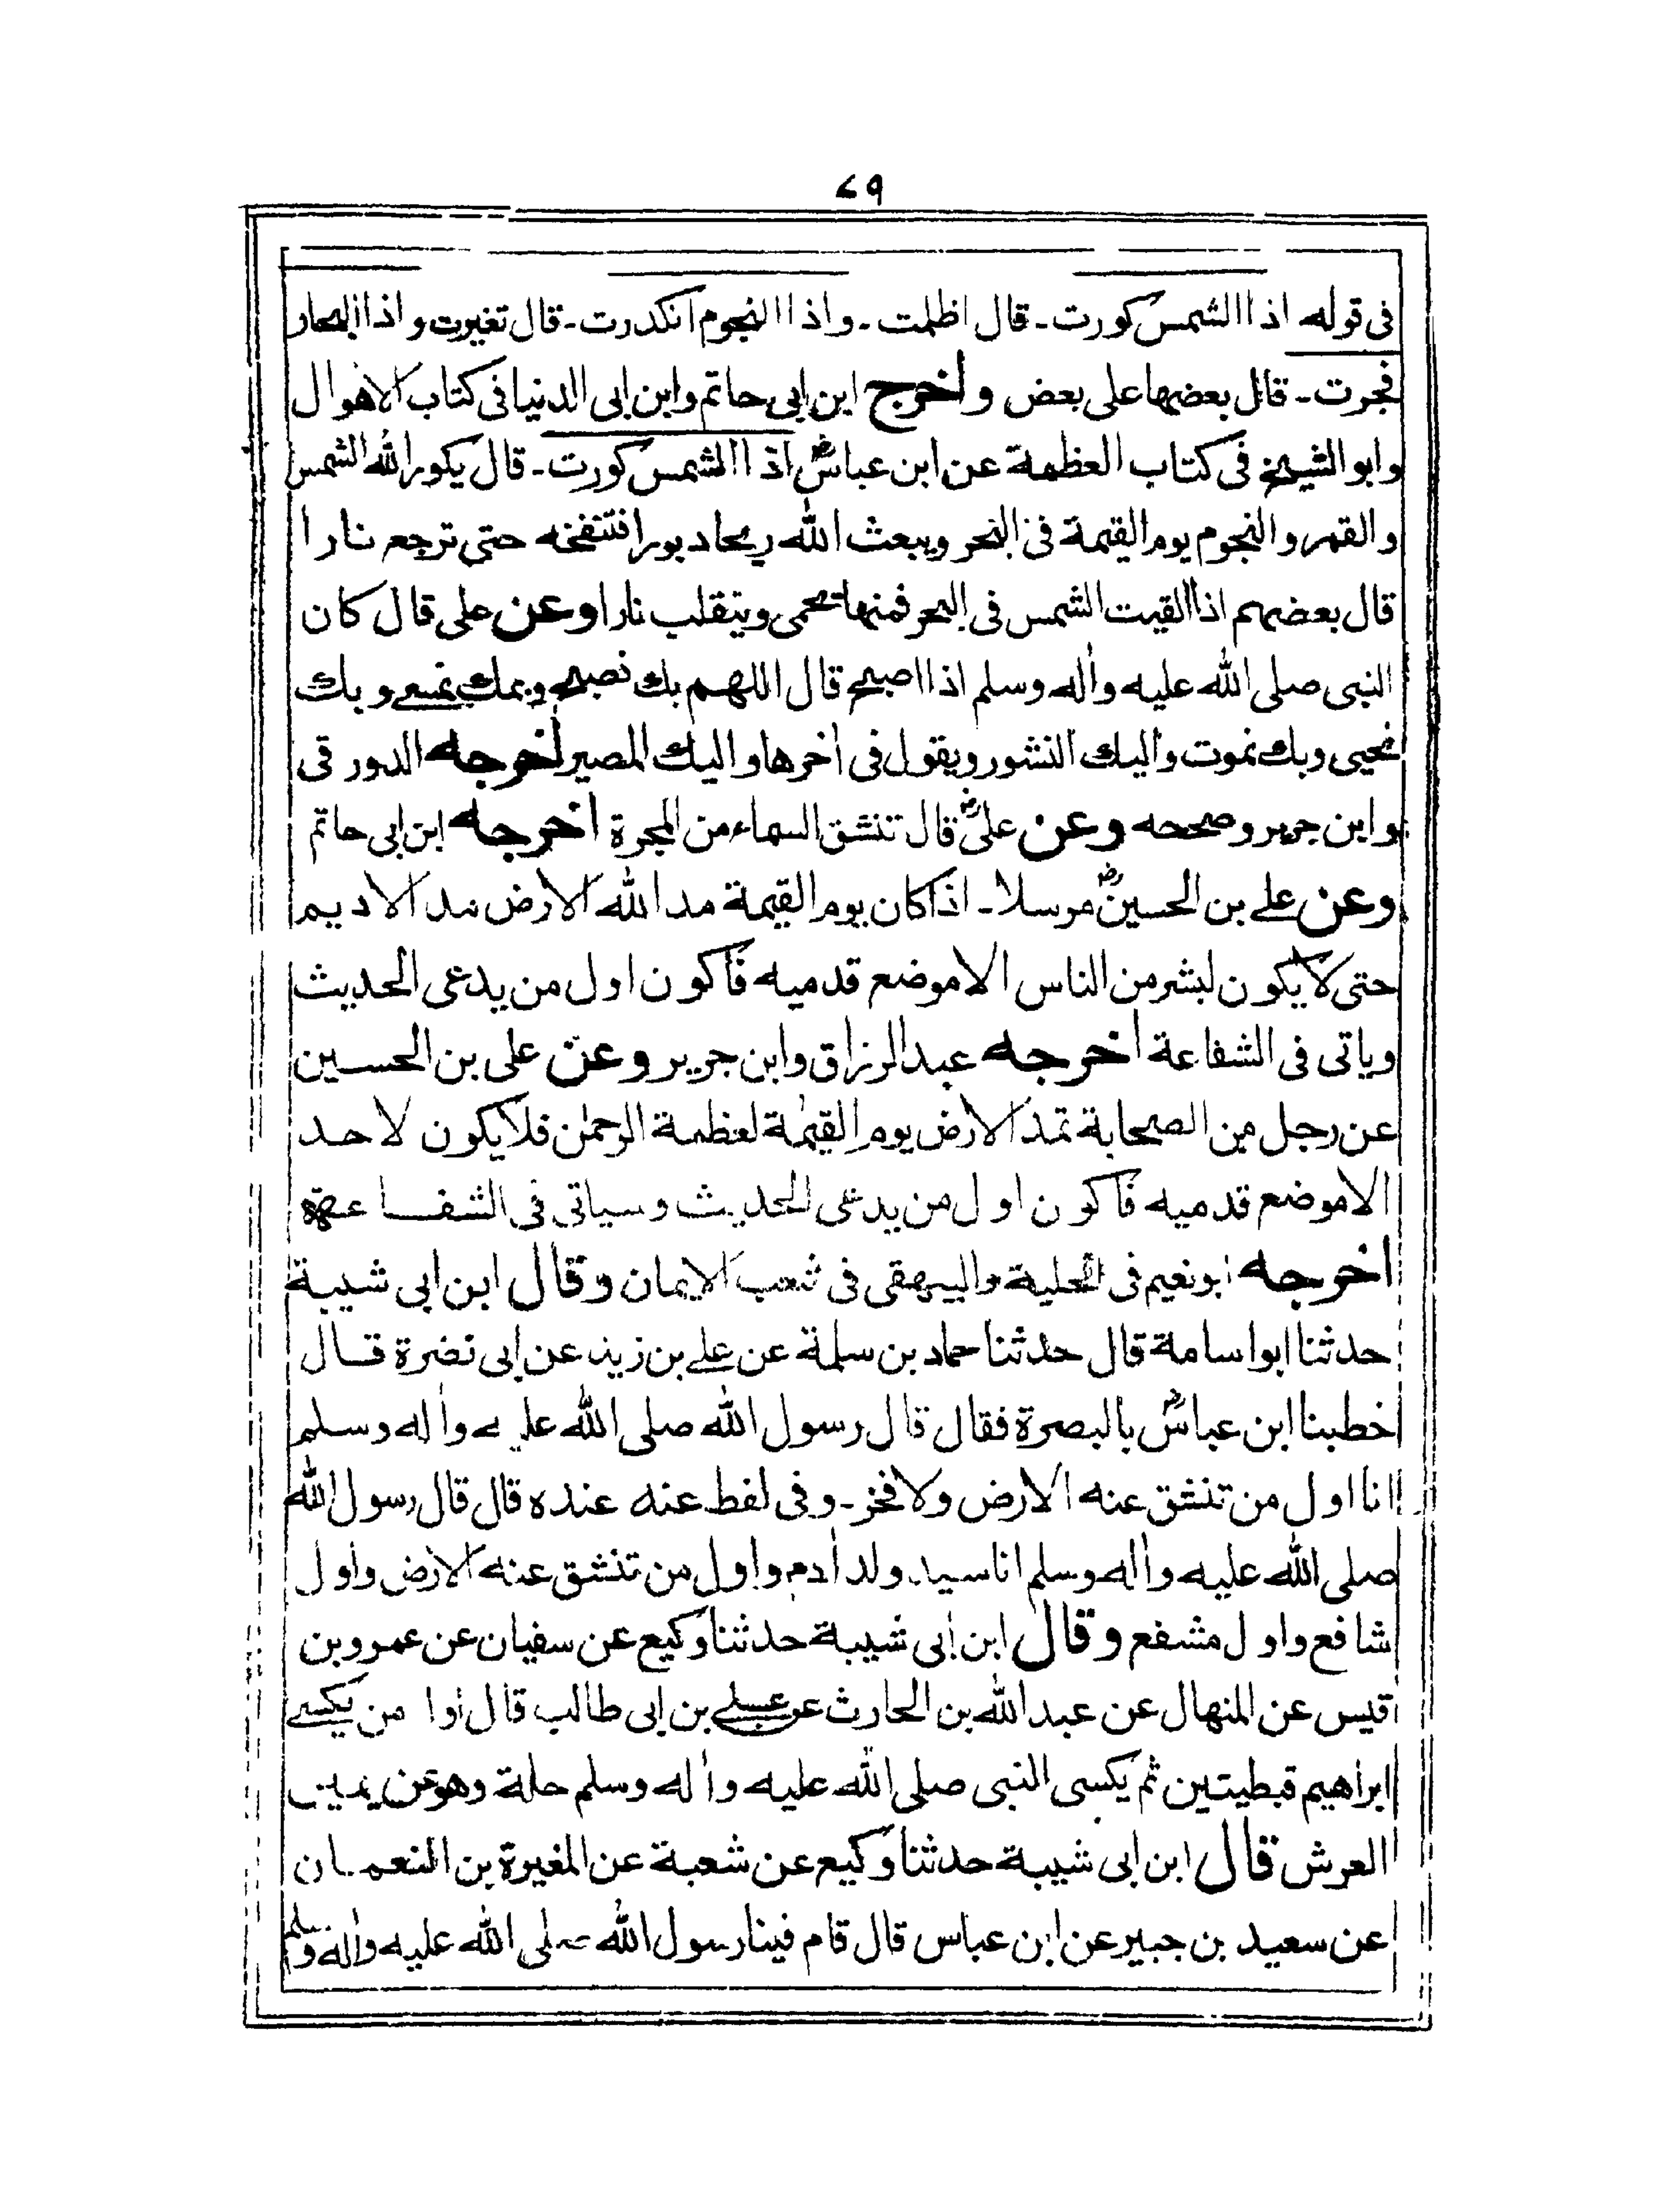 ٧٩
فى قوله اذا الشمس كورت ـ قال اظلمت ـ واذا النجوم انكدرت ـ قال تغيرت واذا البحار
فجرت ـ قال بعضها على بعض واخرج ابن ابى حاتم وابن ابى الدنيا فى كتاب الاهوال
وابو الشيخ فى كتاب العظمة عن ابن عباسؓ اذا الشمس كورت ـ قال يكور الله الشمس
والقمر والنجوم يوم القيمة فى البحر ويبعث الله ريحا دبورا فتنفخه حتى ترجع نارا
قال بعضهم اذا القيت الشمس فى البحر فمنها تحمى وينقلب نارا وعن على قال كان
النبى صلى الله عليه واٰله وسلم اذا اصبح قال اللهم بك نصبح وبك نمسے وبك
نحيى وبك نموت واليك النشور ويقول فى اٰخرها واليك المصير اخرجه الدورقى
وابن جرير وصححه وعن علىؓ قال تنشق السماء من المجرة اخرجه ابن ابى حاتم
وعن علے بن الحسينؓ مرسلا ـ اذا كان يوم القيمة مد الله الارض مد الاديم
حتى لا يكون لبشر من الناس الا موضع قدميه فاكون اول من يدعى الحديث
وياتى فى الشفاعة اخرجه عبد الرزاق وابن جرير وعن على بن الحسين
عن رجل من الصحابة تمد الارض يوم القيٰمة لعظمة الرحمٰن فلا يكون لاحد
الا موضع قدميه فاكون اول من يدعى الحديث وسياتى فى الشفاعة
اخرجه ابو نعيم فى الحلية والبيهقى فى شعب الايمان وقال ابن ابى شيبة
حدثنا ابو اسامة قال حدثنا حماد بن سلمة عن علے بن زيد عن ابى نضرة قال
خطبنا ابن عباسؓ بالبصرة فقال قال رسول الله صلى الله عليه واٰله وسلم
انا اول من تنشق عنه الارض ولا فخر ـ وفى لفظ عنه عنده قال قال رسول الله
صلى الله عليه واٰله وسلم انا سيد ولد اٰدم واول من تنشق عنه الارض واول
شافع واول مشفع وقال ابن ابى شيبة حدثنا وكيع عن سفيان عن عمرو بن
قيس عن المنهال عن عبد الله بن الحارث عن علے بن ابى طالب قال اول من يكسے
ابراهيم قبطيتين ثم يكسى النبى صلى الله عليه واٰله وسلم حلة وهو عن يمين
العرش قال ابن ابى شيبة حدثنا وكيع عن شعبة عن المغيرة بن النعمان
عن سعيد بن جبير عن ابن عباس قال قام فينا رسول الله صلى الله عليه واٰله وسلم